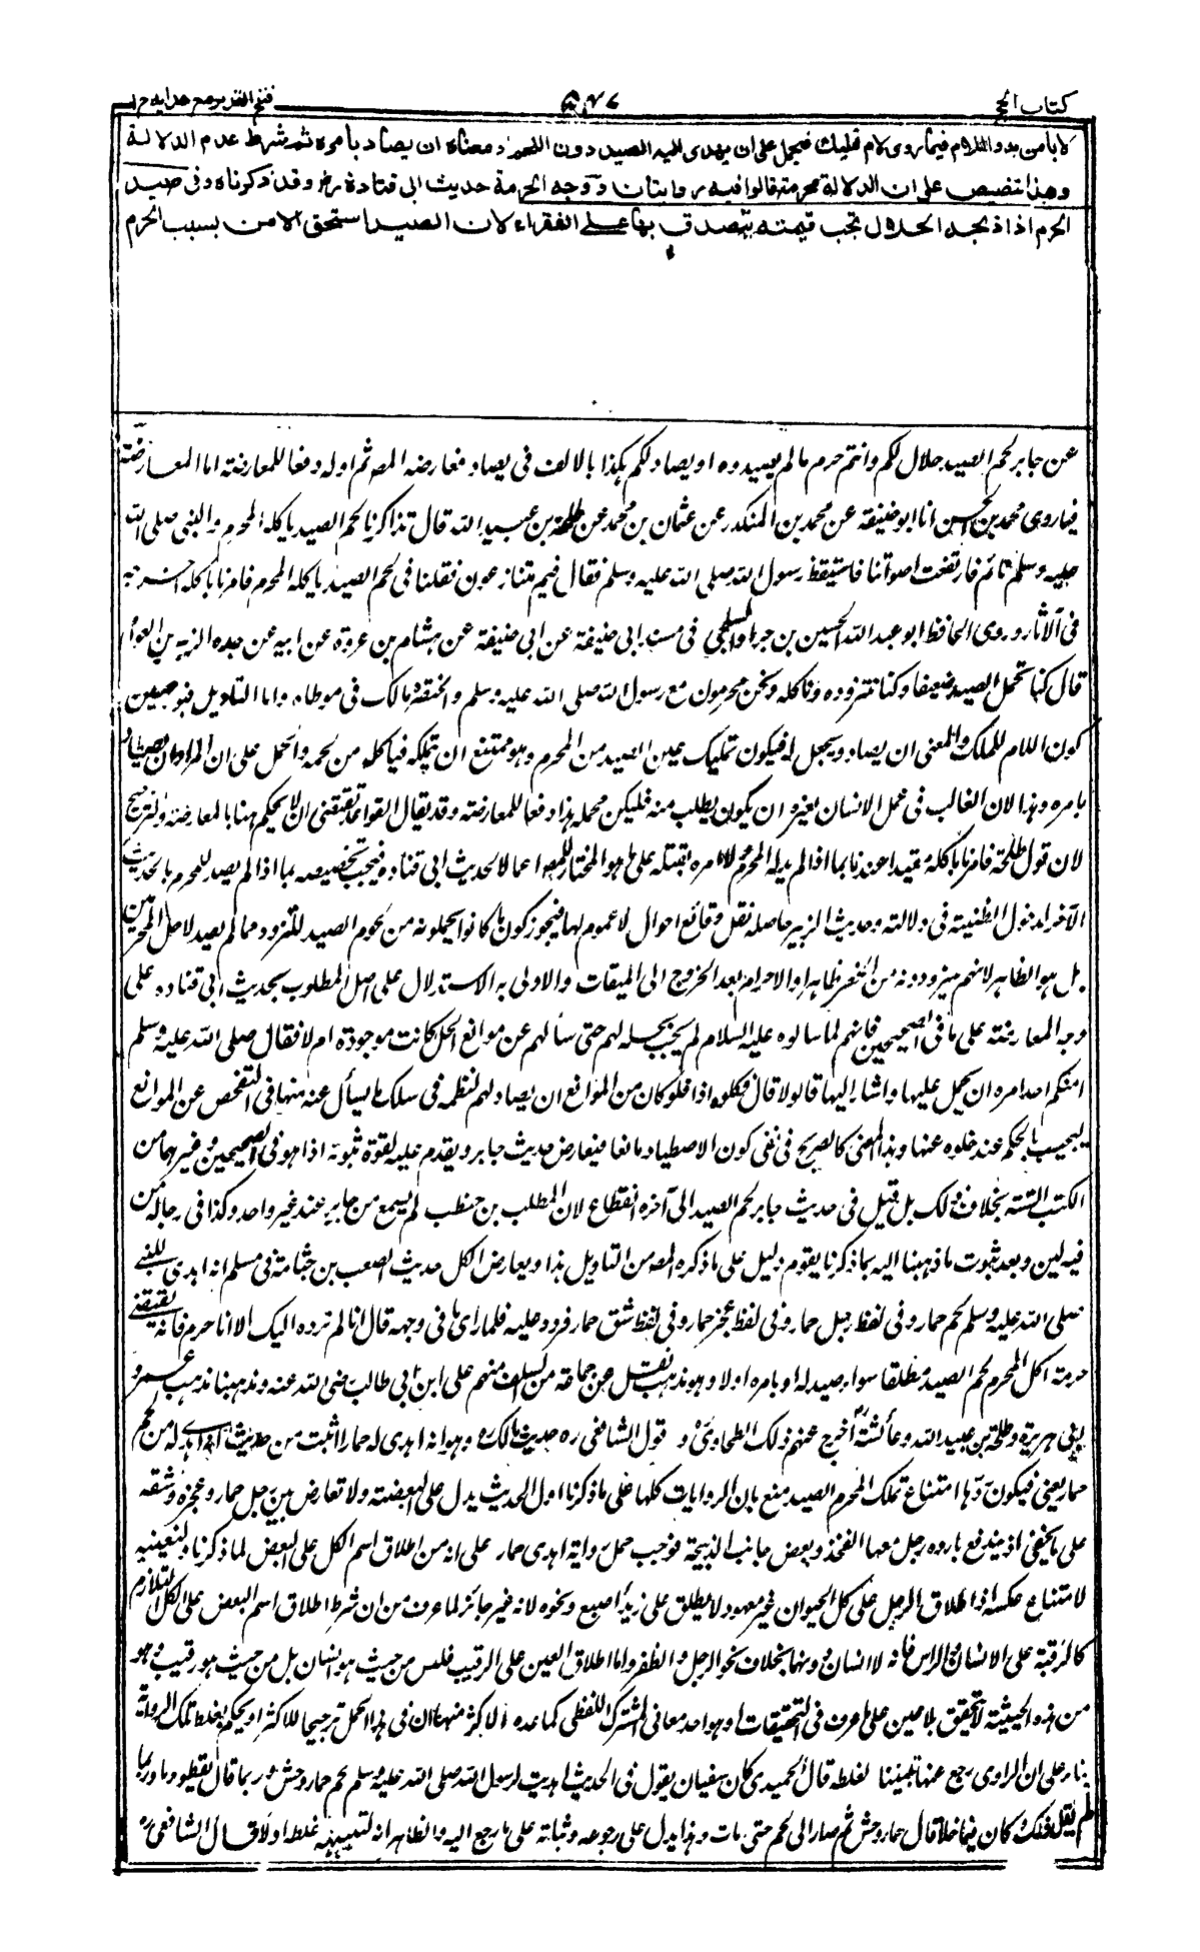 كتاب الحج
فتح القدير مع هدايه ج ١
لا بأس به واللام فيما روى لام تمليك فيحمل على ان يهدى اليه الصيد دون اللحم او معناه ان يصاد بأمره ثم شرط عدم الدلالة
وهذا تنصيص على ان الدلالة محرمة قالوا فيه روايتان ووجه الحرمة حديث ابى قتادة رضـ وقد ذكرناه وفى صيد
الحرم اذا ذبحه الحلال تجب قيمته يتصدق بها على الفقراء لان الصيد استحق الامن بسبب الحرم
عن جابر لحم الصيد حلال لكم وانتم حرم ما لم تصيدوه او يصاد لكم هكذا بالالف فى يصاد فعارضه المصـ ثم اوله دفعا للمعارضة اما المعارضة
فبما روى محمد بن الحسن انا ابو حنيفة عن محمد بن المنكدر عن عثمان بن محمد عن طلحة بن عبيد الله قال تذاكرنا لحم الصيد ياكله المحرم والنبى صلى الله
عليه وسلم نائم فارتفعت اصواتنا فاستيقظ رسول الله صلى الله عليه وسلم فقال فيم تتنازعون فقلنا فى لحم الصيد ياكله المحرم فامرنا باكله اخرجه
فى الآثار وروى الحافظ ابو عبد الله الحسين بن خسرو البلخى فى مسند ابى حنيفة عن ابى حنيفة عن هشام بن عروة عن ابيه عن جده الزبير بن العوام
قال كنا نحمل الصيد صفيفا وكنا نتزوده وناكله ونحن محرمون مع رسول الله صلى الله عليه وسلم واختصره مالك فى موطاه واما التاويل فبوجهين
كون اللام للملك والمعنى ان يصاد ويجعل له فيكون تمليك عين الصيد من المحرم وهو ممتنع ان يتملكه فياكل من لحمه والحمل على ان المراد ان يصاد
بامره وهذا لان الغالب فى عمل الانسان لغيره ان يكون يطلب منه فليكن محمله هذا دفعا للمعارضة وقد يقال القواعد تقتضى ان لا يحكم هنا بالمعارضة والترجيح
لان قول طلحة فامرنا باكله مقيد عندنا بما اذا لم يدله المحرم ولا امره بقتله على ما هو المختار للمصـ اعمالا لحديث ابى قتادة فيجب تخصيصه بما اذا لم يصد للمحرم بالحديث
الآخر لدخول الظنية فى دلالته وحديث الزبير حاصله نقل وقائع احوال لا عموم لها فيجوز كون ما كانوا يحملونه من لحوم الصيد للتزود مما لم يصد لاجل المحرمين
بل هو الظاهر لانهم يتزودونه من الحضر ظاهرا والاحرام بعد الخروج الى الميقات والاولى به الاستدلال على اصل المطلوب بحديث ابى قتادة على
وجه المعارضة على ما فى الصحيحين فانهم لما سالوه عليه السلام لم يجب بحله لهم حتى سألهم عن موانع الحل اكانت موجودة ام لا فقال صلى الله عليه وسلم
امنكم احد امره ان يحمل عليها او اشار اليها قالوا لا قال فكلوا اذا فلو كان من الموانع ان يصاد لهم لنظمه فى سلك ما يسأل عنه منها فى التفحص عن الموانع
ليجيب بالحكم عند خلوه عنها وهذا المعنى كالصريح فى نفى كون الاصطياد مانعا فيعارض حديث جابر ويقدم عليه لقوة ثبوته اذ هو فى الصحيحين وغيرهما من
الكتب الستة بخلاف ذلك بل قيل فى حديث جابر لحم الصيد الى آخره انقطاع لان المطلب بن حنطب لم يسمع من جابر عند غير واحد وكذا فى رجاله من
فيه لين وبعد ثبوت ما ذهبنا اليه بما ذكرنا يقوم دليل على ما ذكره المصـ من التاويل هذا ويعارض الكل حديث الصعب بن جثامة فى مسلم انه اهدى للنبى
صلى الله عليه وسلم لحم حمار وفى لفظ رجل حمار وفى لفظ عجز حمار وفى لفظ شق حمار فرده عليه فلما راى ما فى وجهه قال انا لم نرده اليك الا انا حرم فانه يقتضى
حرمة اكل المحرم لحم الصيد مطلقا سواء صيد له او بامره اولا وهو مذهب نقل عن جماعة من السلف منهم على ابن ابى طالب رضى الله عنه ومذهبنا مذهب عمر و
ابى هريرة وطلحة بن عبيد الله وعائشة رضـ اخرج عنهم ذلك الطحاوى وقول الشافعى ره حديث مالك ره وهو انه اهدى له حمارا اثبت من حديث انه اهدى له من لحم
حمار يعنى فيكون رده امتناع تملك المحرم الصيد منع بان الروايات كلها على ما ذكرنا اول الحديث يدل على البعضية ولا تعارض بين رجل حمار وعجزه وشقه
على ما يخفى اذ يندفع بارادة رجل معها الفخذ وبعض جانب الذبيحة فوجب حمل رواية اهدى حمارا على انه من اطلاق اسم الكل على البعض لما ذكرنا ولتعينه
لامتناع عكسه اذ اطلاق الرجل على كل الحيوان غير معهود لا يطلق على زيد اصبع ونحوه لانه غير جائز لما عرف من ان شرط اطلاق اسم البعض على الكل التلازم
كالرقبة على الانسان والراس فانه لا انسان دونهما بخلاف نحو الرجل والظفر واما اطلاق العين على الرقيب فليس من حيث هو انسان بل من حيث هو رقيب وهو
من هذه الحيثية لا يتحقق بلا عين على ما عرف فى التحقيقات او هو احد معانى المشترك اللفظى كما عده الاكثر منها ان فى هذا الحمل ترجيحا للاكثر او يحكم بغلط تلك الرواية
بناء على ان الراوى رجع عنها تبيينا لغلطه قال الحميدى كان سفيان يقول فى الحديث اهديت لرسول الله صلى الله عليه وسلم لحم حمار وحش وربما قال يقطر دما وربما
لم يقل ذلك كان فيما خلا قال حمار وحش ثم صار الى لحم حتى مات وهذا يدل على رجوعه وثباته على ما رجع اليه والظاهر انه لتبينه غلطه اولا قال الشافعى ره